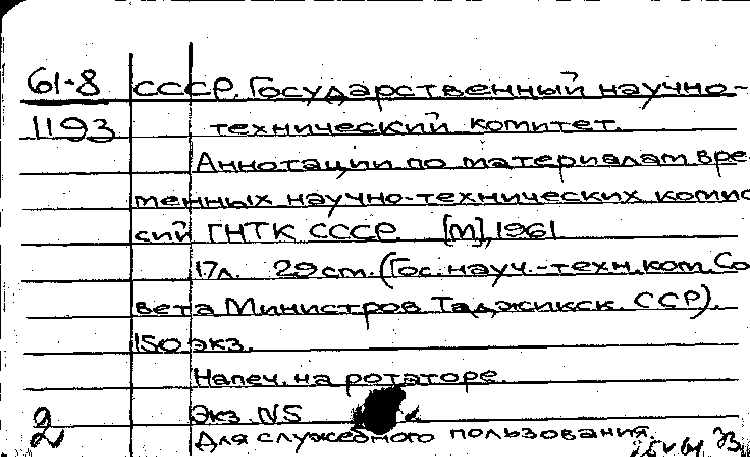 61-8 СССР. Государственный научно-
1193 технический комитет.
Аннотации по материалам вре
менных научно-технических комис
сий ГНТК СССР [М], 1961
17л. 29см. (Гос. науч.-техн. ком. Со
вета Министров Таджикск. ССР).
150 экз.
Напеч. на ротаторе.
2 Экз. №5
Для служебного пользования.